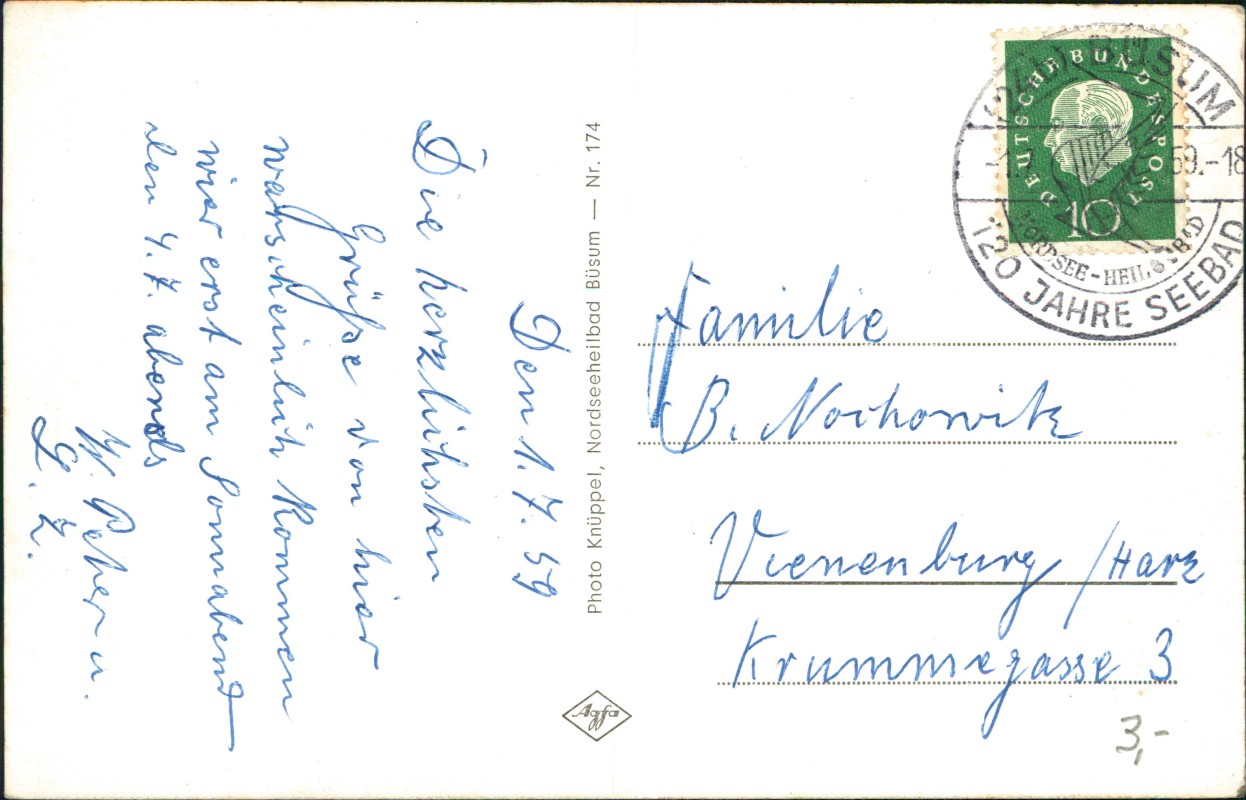 Den 1.7.59
Die herzlichsten
Grüße von hier
wahrscheinlich kommen
wir erst am Sonnabend
den 4.7. abends
W. Peter u.
Photo Knüppel, Nordseeheilbad Büsum — Nr. 174
Agfa
DEUTSCHE BUNDESPOST
10
BÜSUM
-1.7. 59.-18
NORDSEE-HEILBAD
120 JAHRE SEEBAD
Familie
B. Nochowitz
Vienenburg /Harz
Krummegasse 3
3,-